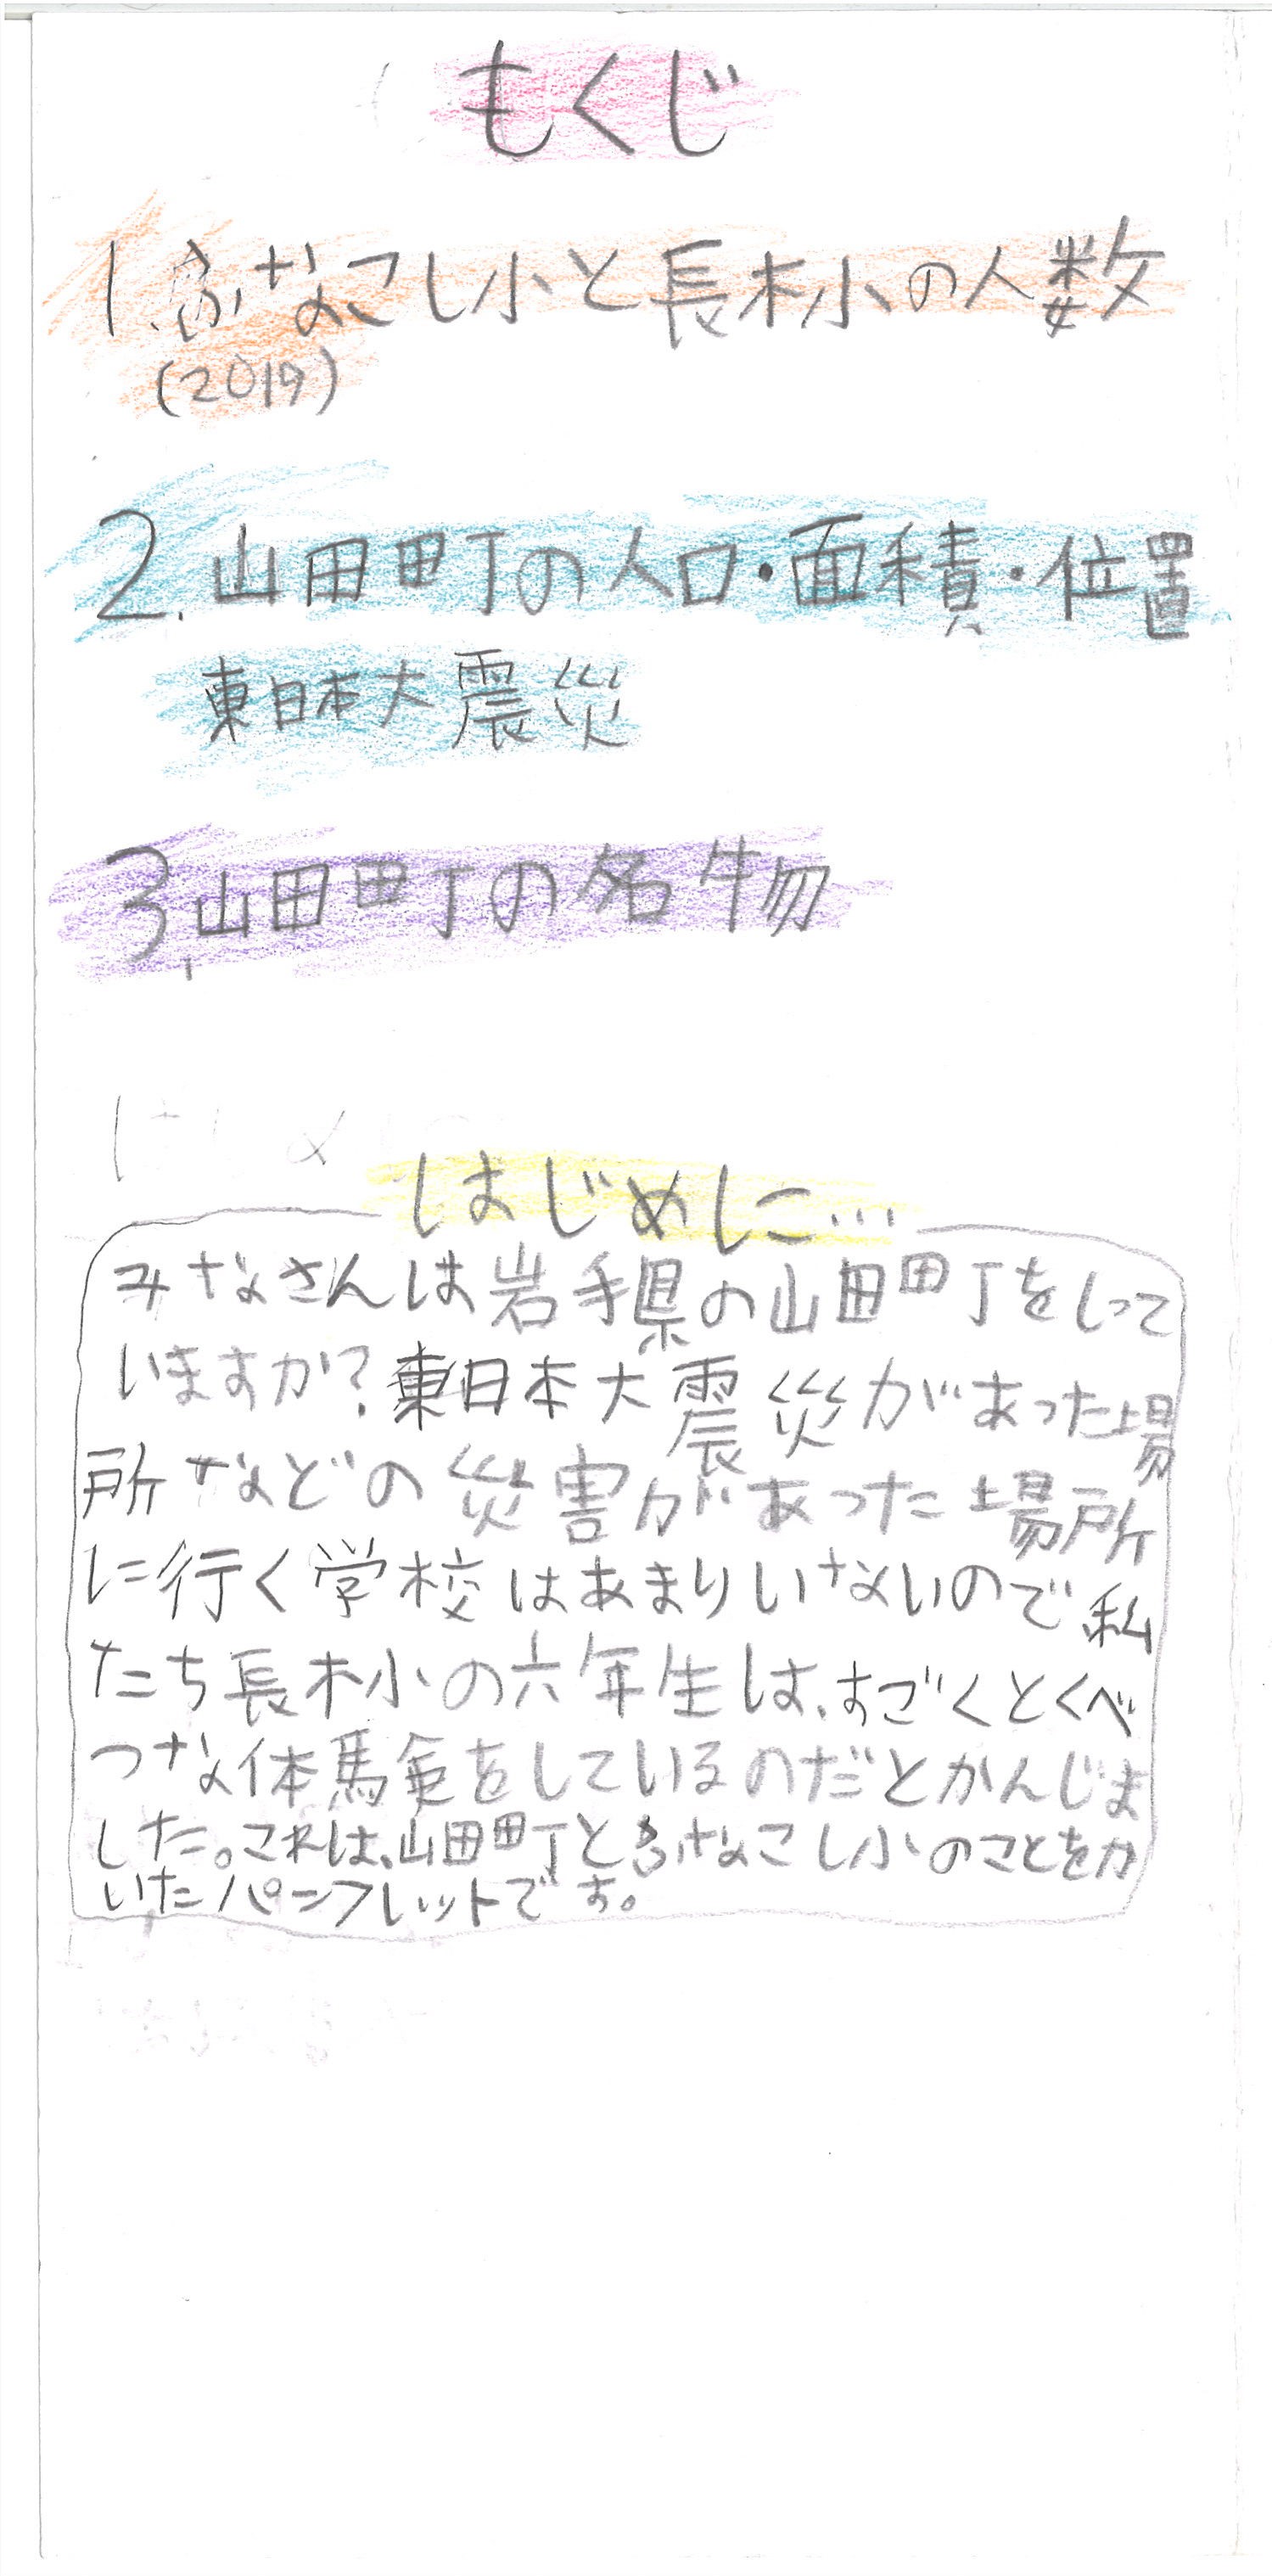 もくじ
1.ふなこし小と長木小の人数
(2019)
2.山田町の人口・面積・位置
東日本大震災
3.山田町の名物
はじめに…
みなさんは岩手県の山田町をしって
いますか?東日本大震災があった場
所などの災害があった場所
に行く学校はあまりいないので私
たち長木小の六年生は、すごくとくべ
つな体験をしているのだとかんじま
した。これは、山田町とふなこし小のことをか
いたパンフレットです。